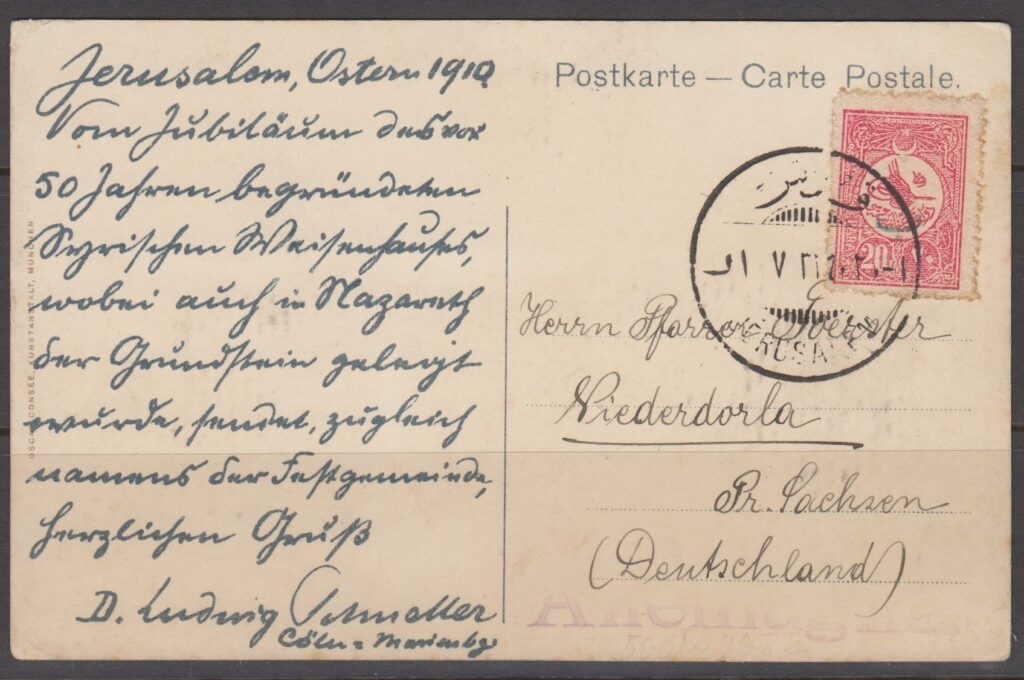 Jerusalem, Ostern 1910
Vom Jubiläum des vor
50 Jahren begründeten
Syrischen Waisenhauses,
wobei auch in Nazareth
der Grundstein gelegt
wurde, sendet, zugleich
namens der Festgemeinde,
herzlichen Gruß
D. Ludwig Schneller
Cöln-Marienbg
Postkarte — Carte Postale.
20
JERUSALEM
Herrn Pfarrer Foerster
Niederdorla
Pr. Sachsen
(Deutschland)
Allemagne
OSCAR CONSEE, KUNSTANSTALT, MÜNCHEN